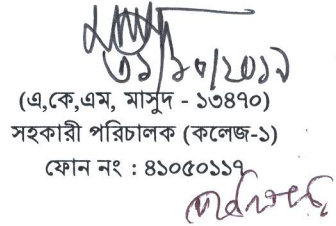 ৩১/১০/২০১৯
(এ,কে,এম, মাসুদ - ১৩৪৭০)
সহকারী পরিচালক (কলেজ-১)
ফোন নং : ৪১০৫০১১৭